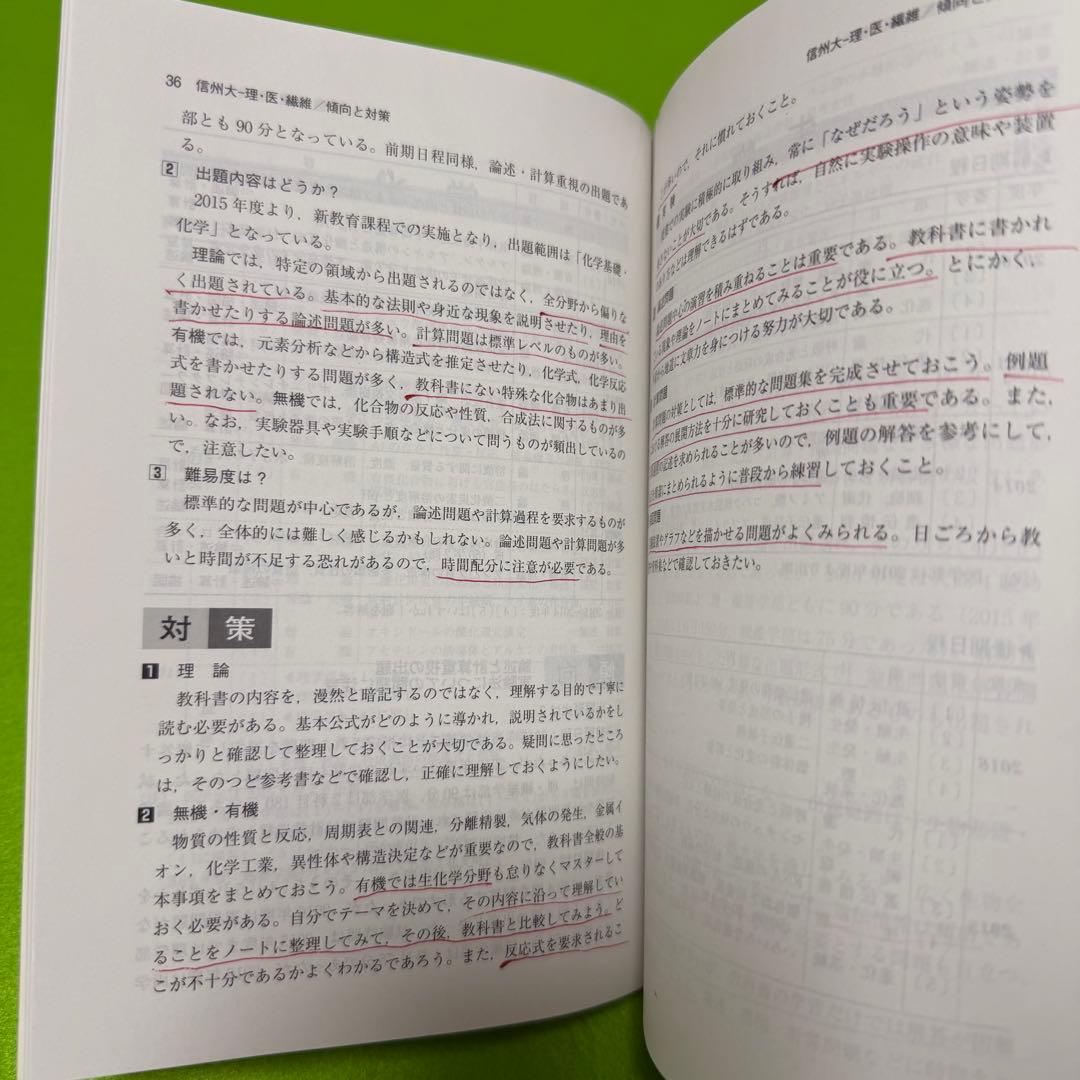 36 信州大-理・医・繊維／傾向と対策
部とも90分となっている。前期日程同様，論述・計算重視の出題であ
る。
2 出題内容はどうか？
2015年度より，新教育課程での実施となり，出題範囲は「化学基礎・
化学」となっている。
理論では，特定の領域から出題されるのではなく，全分野から偏りな
く出題されている。基本的な法則や身近な現象を説明させたり，理由を
書かせたりする論述問題が多い。計算問題は標準レベルのものが多い。
有機では，元素分析などから構造式を推定させたり，化学式，化学反応
式を書かせたりする問題が多く，教科書にない特殊な化合物はあまり出
題されない。無機では，化合物の反応や性質，合成法に関するものが多
い。なお，実験器具や実験手順などについて問うものが頻出しているの
で，注意したい。
3 難易度は？
標準的な問題が中心であるが，論述問題や計算過程を要求するものが
多く，全体的には難しく感じるかもしれない。論述問題や計算問題が多
いと時間が不足する恐れがあるので，時間配分に注意が必要である。
対策
1 理論
教科書の内容を，漫然と暗記するのではなく，理解する目的で丁寧に
読む必要がある。基本公式がどのように導かれ，説明されているかをし
っかりと確認して整理しておくことが大切である。疑問に思ったところ
は，そのつど参考書などで確認し，正確に理解しておくようにしたい。
2 無機・有機
物質の性質と反応，周期表との関連，分離精製，気体の発生，金属イ
オン，化学工業，異性体や構造決定などが重要なので，教科書全般の基
本事項をまとめておこう。有機では生化学分野も怠りなくマスターして
おく必要がある。自分でテーマを決めて，その内容に沿って理解してい
ることをノートに整理してみて，その後，教科書と比較してみよう。ど
こが不十分であるかよくわかるであろう。また，反応式を要求されるこ
信州大-理・医・繊維／傾向と
ので，それに慣れておくこと。
実験に積極的に取り組み，常に「なぜだろう」という姿勢を
ことが大切である。そうすれば，自然に実験操作の意味や装置
などは理解できるはずである。
の演習を積み重ねることは重要である。教科書に書かれ
現象や理論をノートにまとめてみることが役に立つ。とにかく，
地道に文章力を身につける努力が大切である。
問題
の対策としては，標準的な問題集を完成させておこう。例題
解答の展開方法を十分に研究しておくことも重要である。また，
の記述を求められることが多いので，例題の解答を参考にして，
にまとめられるように普段から練習しておくこと。
やグラフなどを描かせる問題がよくみられる。日ごろから教
などで確認しておきたい。